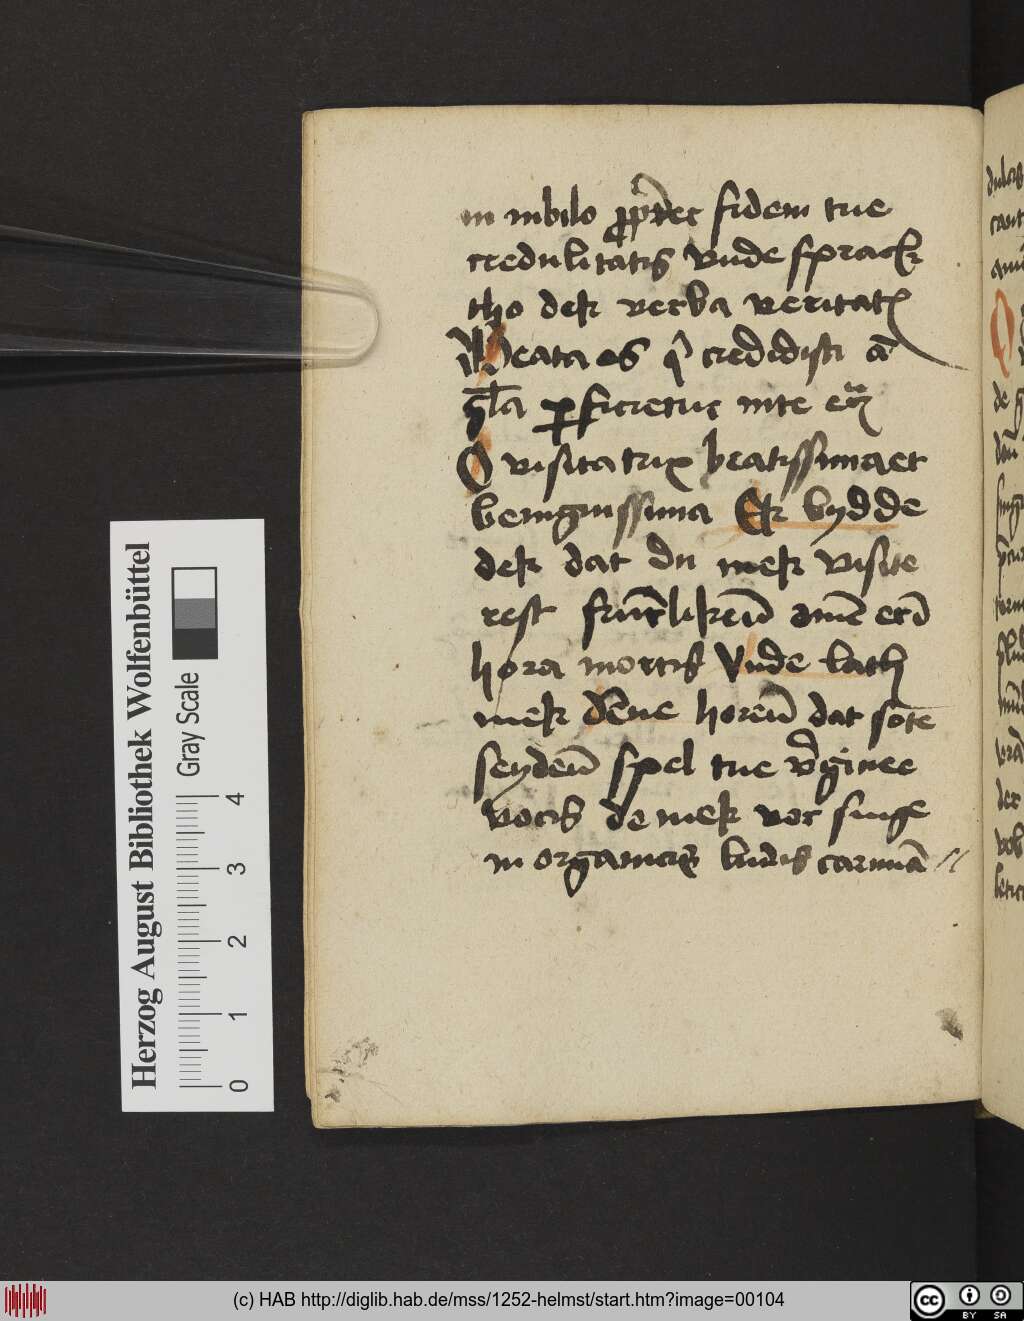 in iubilo propter fidem tue
credulitatis vnde sprack
tho dek verba veritatis
Beata es q̄ credidisti ā
gl̄a ꝑficietur in te etc̄
O visitatrix beatissima et
benignissima Ek bydde
dek dat du mek visite
rest frūtlikē amē etiā
hora mortis Vnde lath
mek dēne horeū dat sote
seydeū spel tue v̄ginee
vocis de mek vor singe
in organicis ludis carminā
Herzog August Bibliothek Wolfenbüttel
Gray Scale
0 1 2 3 4
(c) HAB http://diglib.hab.de/mss/1252-helmst/start.htm?image=00104
cc BY SA